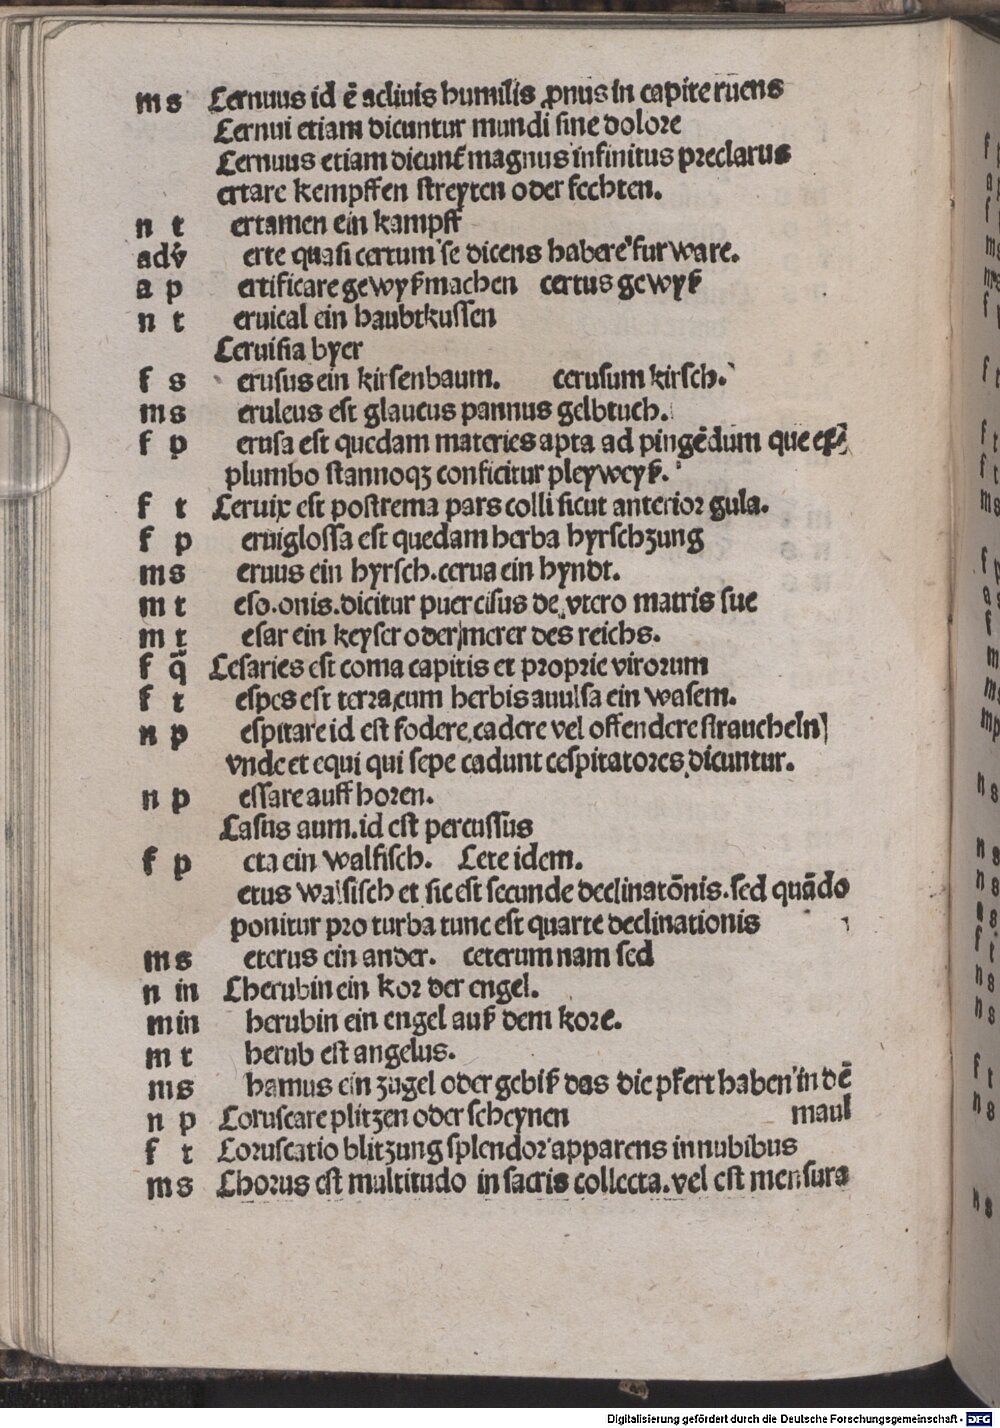 m s Cernuus id ē acliuis humilis ꝓnus in capite ruens
Cernui etiam dicuntur mundi sine dolore
Cernuus etiam dicunt᷑ magnus infinitus preclarus
ertare kempffen streyten oder fechten.
n t ertamen ein kampff
adv̄ erte quasi certum se dicens habere fur ware.
a p ertificare gewyß machen certus gewyß
n t eruical ein haubtkussen
Ceruisia byer
f s erusus ein kirsenbaum. cerusum kirsch.
m s eruleus est glaucus pannus gelbtuch.
f p erusa est quedam materies apta ad pingēdum que ex
plumbo stannoqꝫ conficitur pleyweyß.
f t Ceruix est postrema pars colli sicut anterior gula.
f p eruiglossa est quedam herba hyrschzung
m s eruus ein hyrsch. cerua ein hyndt.
m t eso.onis.dicitur puer cisus de vtero matris sue
m t esar ein keyser oder merer des reichs.
f q̄ Cesaries est coma capitis et proprie virorum
f t espes est terra cum herbis auulsa ein wasem.
n p espitare id est fodere cadere vel offendere straucheln
vnde et equi qui sepe cadunt cespitatores dicuntur.
n p essare auff horen.
Casus aum. id est percussus
f p eta ein walfisch. Cete idem.
etus walfisch et sic est secunde declinatōnis. sed quādo
ponitur pro turba tunc est quarte declinationis
m s eterus ein ander. ceterum nam sed
n in Cherubin ein kor der engel.
m in herubin ein engel auß dem kore.
m t herub est angelus.
m s hamus ein zugel oder gebiß das die pfert haben in dē
n p Coruscare plitzen oder scheynen maul
f t Coruscatio blitzung splendor apparens in nubibus
m s Chorus est multitudo in sacris collecta. vel est mensura
Digitalisierung gefördert durch die Deutsche Forschungsgemeinschaft - DFG